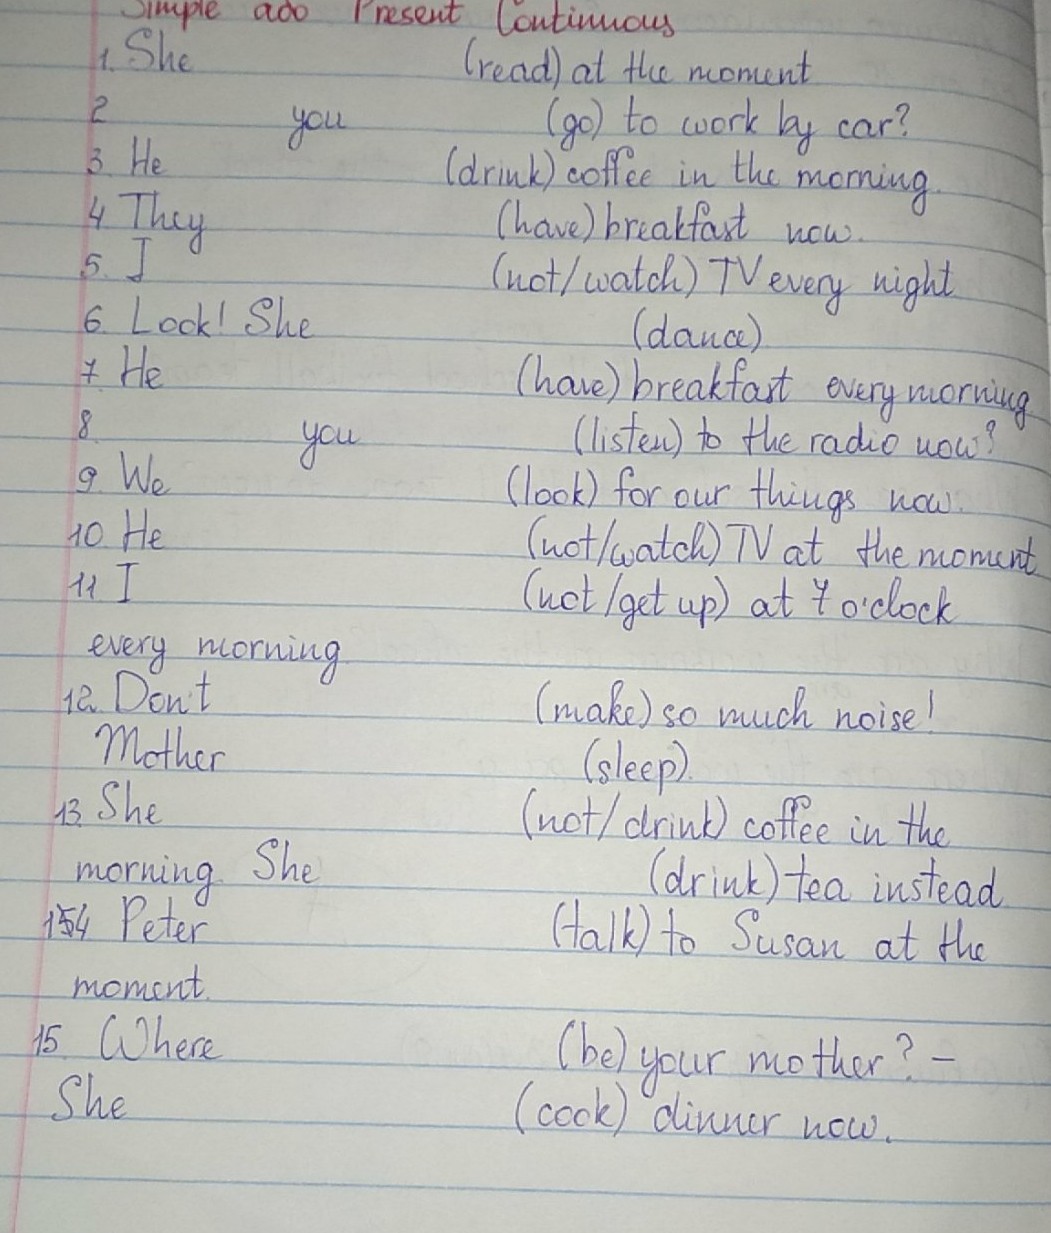 Simple ado Present Continuous
1. She (read) at the moment
2 you (go) to work by car?
3. He (drink) coffee in the morning.
4. They (have) breakfast now.
5. I (not/watch) TV every night
6. Look! She (dance)
7. He (have) breakfast every morning
8. you (listen) to the radio now?
9. We (look) for our things now.
10. He (not/watch) TV at the moment
11 I (not/get up) at 7 o'clock
every morning
12. Don't (make) so much noise!
Mother (sleep).
13. She (not/drink) coffee in the
morning. She (drink) tea instead.
154 Peter (talk) to Susan at the
moment.
15. Where (be) your mother? -
She (cook) dinner now.